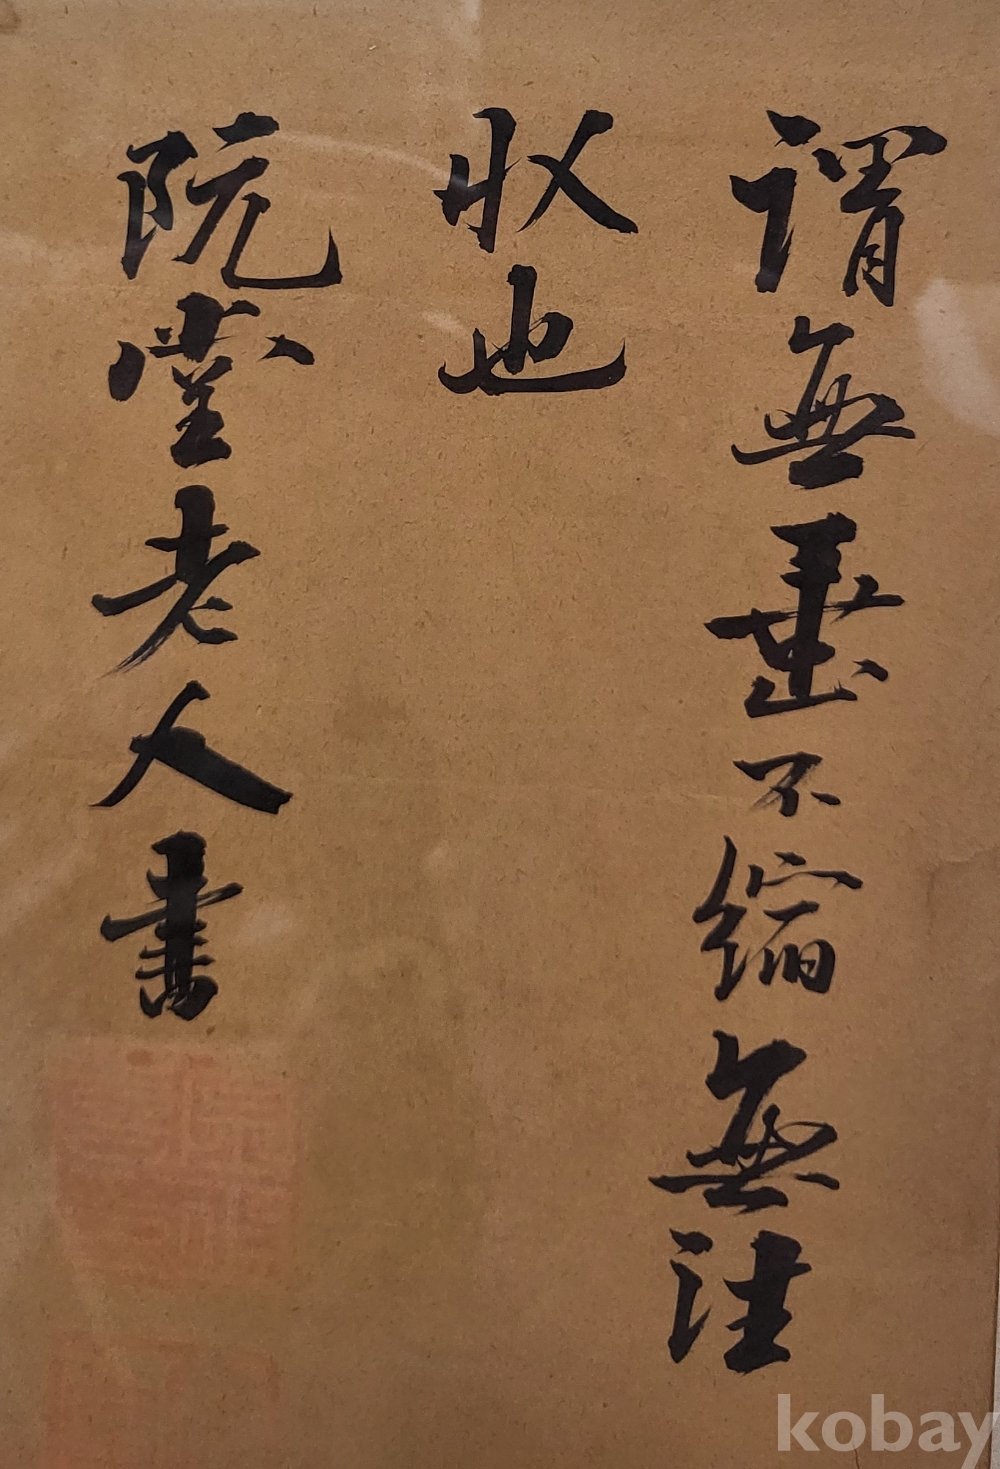 謂無垂不縮無往
収也
阮堂老人書
kobay